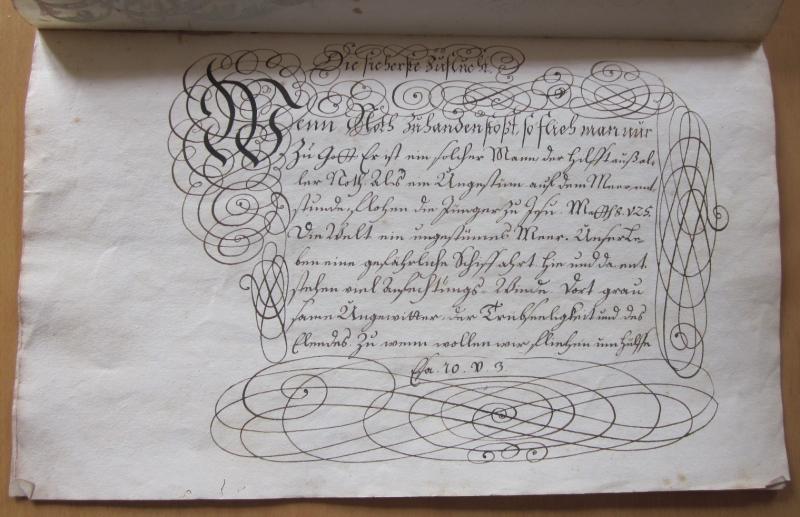 Die sicherste Zuflucht.
Wenn Noth zuhanden stößt, so flieh man nur
Zu Gott. Er ist ein solcher Mann der hilfft auß al-
ler Noth. Als ein Ungestüm auf dem Meer ent
stunde, flohen die Jünger zu Jesu. Matth 8. v 25.
Die Welt ein ungestümes Meer. Unser Le-
ben eine gefährliche Schiffahrt. Hie und da ent-
stehen viel Anfechtungs-Winde. Dort grau
same Ungewitter der Trübseeligkeit und des
Elendes. Zu wem wollen wir fliehen um hülffe
Esa. 10. v. 3.